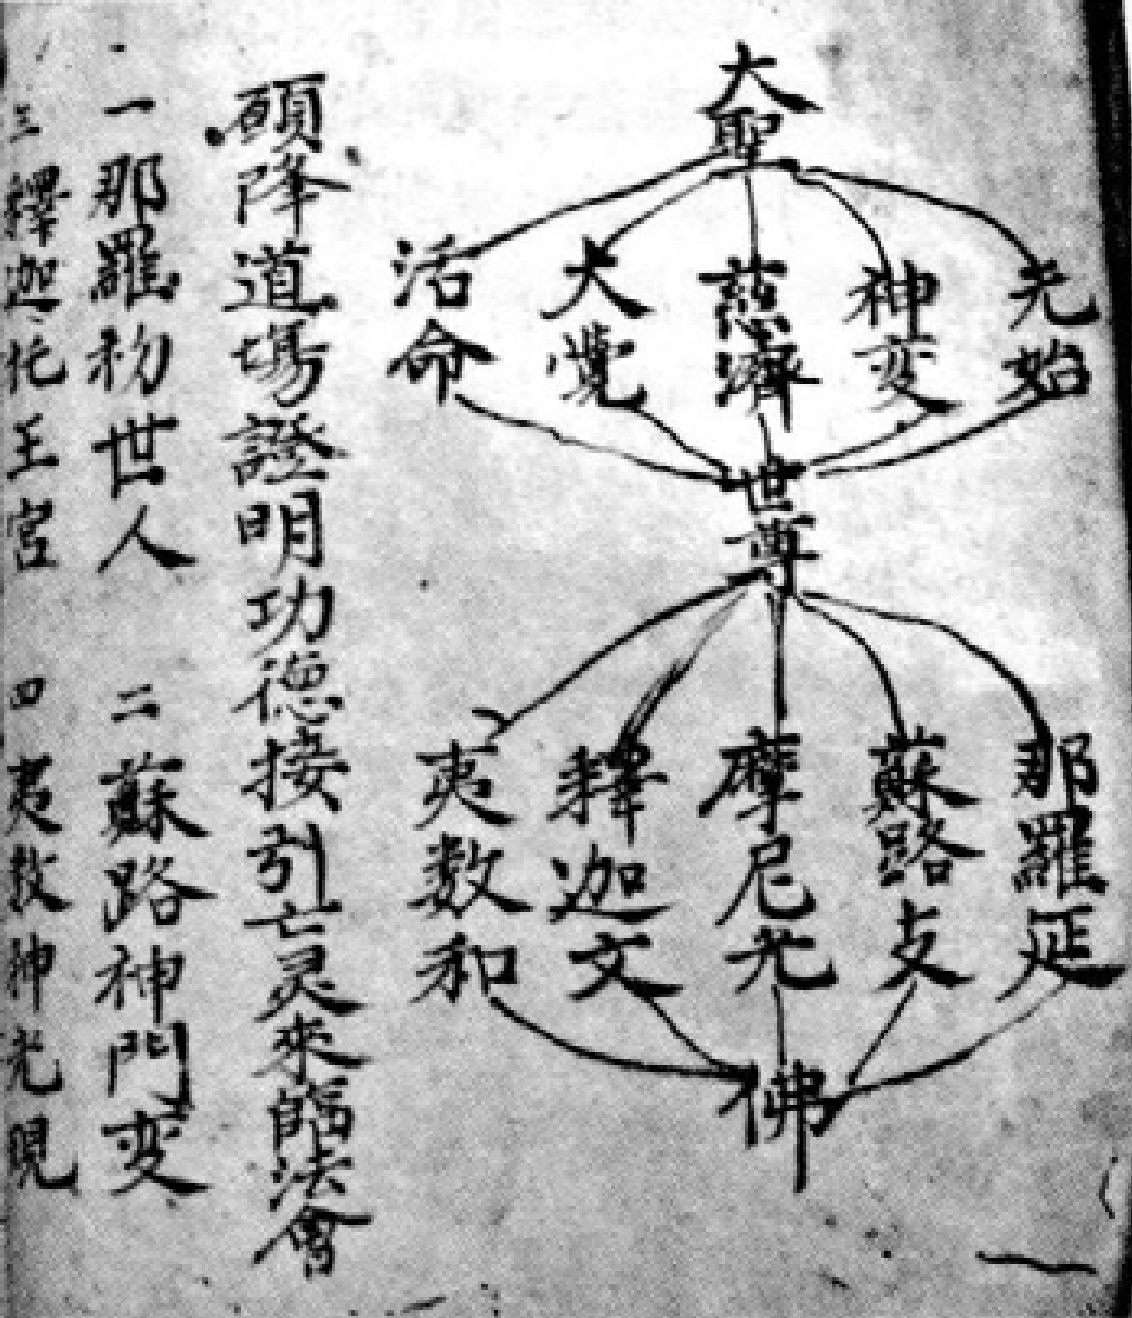 大聖
元始
神变
慈濟
大覺
活命
世尊
那羅延
蘇路支
摩尼光
釋迦文
夷数和
佛
願降道塲證明功德接引亡灵來臨法會
一那羅初世人 二蘇路神門变
三釋迦托王宫 四夷数神光現